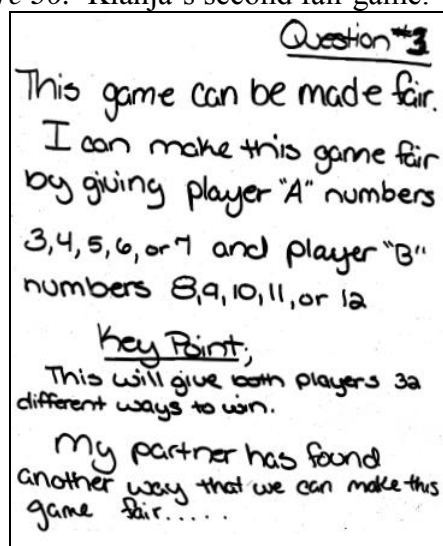 Question #3
This game can be made fair.
I can make this game fair
by giving player "A" numbers
3,4,5,6, or 7 and player "B"
numbers 8,9,10,11, or 12
Key Point;
This will give both players 32
different ways to win.
My partner has found
another way that we can make this
game fair.....